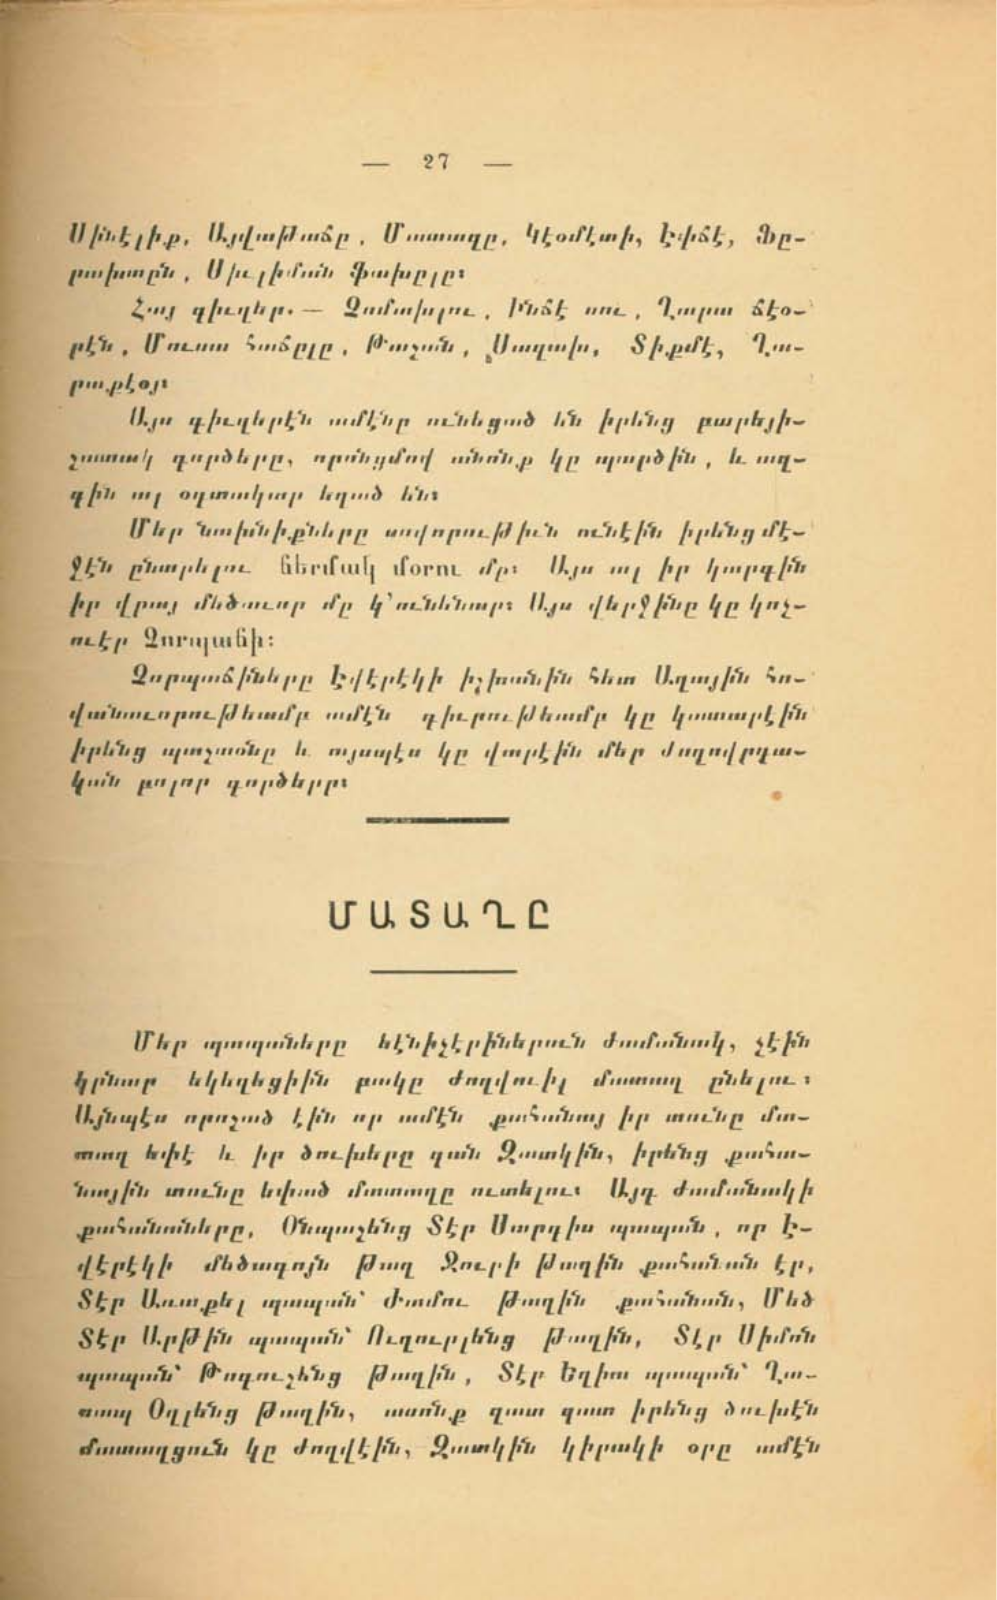 — 27 —
Սինէլիք, Այվաթաճը, Մատազը, Կէօմէտի, Էփճէ, Ֆը-
րախտըն, Սիւլիման Ֆախըլը։
Հայ գիւղեր.— Չոմախլու, Ինճէ սու, Ղարա ճէօ-
րէն, Մուսա հաճըլը, Թաշան, Սազախ, Տիքմէ, Ղա-
րաքէօյ։
Այս գիւղերէն ամէնը ունեցած են իրենց բարեյի-
շատակ գործերը, որոնցմով անոնք կը պարծին, և ազ-
գին ալ օգտակար եղած են։
Մեր նախնիքները սովորութիւն ունէին իրենց մէ-
ջէն ընտրելու ճերմակ մօրու մը։ Այս ալ իր կարգին
իր վրայ մեծաւոր մը կ՚ունենար։ Այս վերջինը կը կոչ-
ուէր Չորպաճի։
Չորպաճիները Էվէրէկի իշխանին հետ Ազային հո-
վանաւորութեամբ ամէն դիւրութեամբ կը կատարէին
իրենց պաշտօնը և այսպէս կը վարէին մեր ժողովրդա-
կան բոլոր գործերը։
ՄԱՏԱՂԸ
Մեր պապաները եէնիչէրիներուն ժամանակ, չէին
կրնար եկեղեցիին բակը ժողվուիլ մատաղ ընելու։
Այնպէս որոշած էին որ ամէն քահանայ իր տունը մա-
տաղ եփէ և իր ծուխերը գան Զատկին, իրենց քահա-
նային տունը եփած մատաղը ուտելու։ Այդ ժամանակի
քահանաները, Օնպաշենց Տէր Սարգիս պապան, որ Է-
վէրէկի մեծագոյն թաղ Ջուրի թաղին քահանան էր,
Տէր Առաքել պապան՝ ժամու թաղին քահանան, Մեծ
Տէր Արթին պապան՝ Ուղուրլենց թաղին, Տէր Սիմոն
պապան՝ Թոգուշենց թաղին, Տէր Եղիա պապան՝ Ղա-
սապ Օղլենց թաղին, ասոնք զատ զատ իրենց ծուխէն
մատաղցուն կը ժողվէին, Զատկին կիրակի օրը ամէն